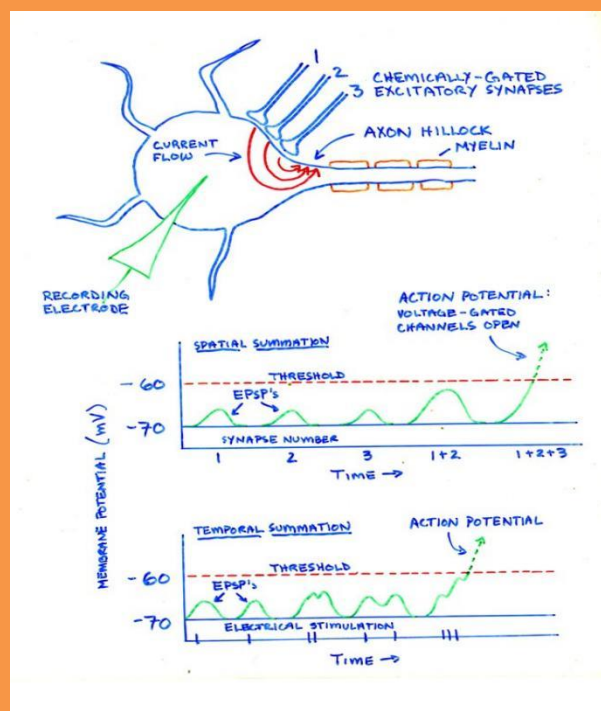 1
2
3
CHEMICALLY-GATED
EXCITATORY SYNAPSES
CURRENT
FLOW
AXON HILLOCK
MYELIN
RECORDING
ELECTRODE
ACTION POTENTIAL:
VOLTAGE-GATED
CHANNELS OPEN
SPATIAL SUMMATION
THRESHOLD
-60
EPSP's
-70
SYNAPSE NUMBER
1 2 3 1+2 1+2+3
TIME →
MEMBRANE POTENTIAL (mV)
TEMPORAL SUMMATION
ACTION POTENTIAL
THRESHOLD
-60
EPSP's
-70
ELECTRICAL STIMULATION
TIME →